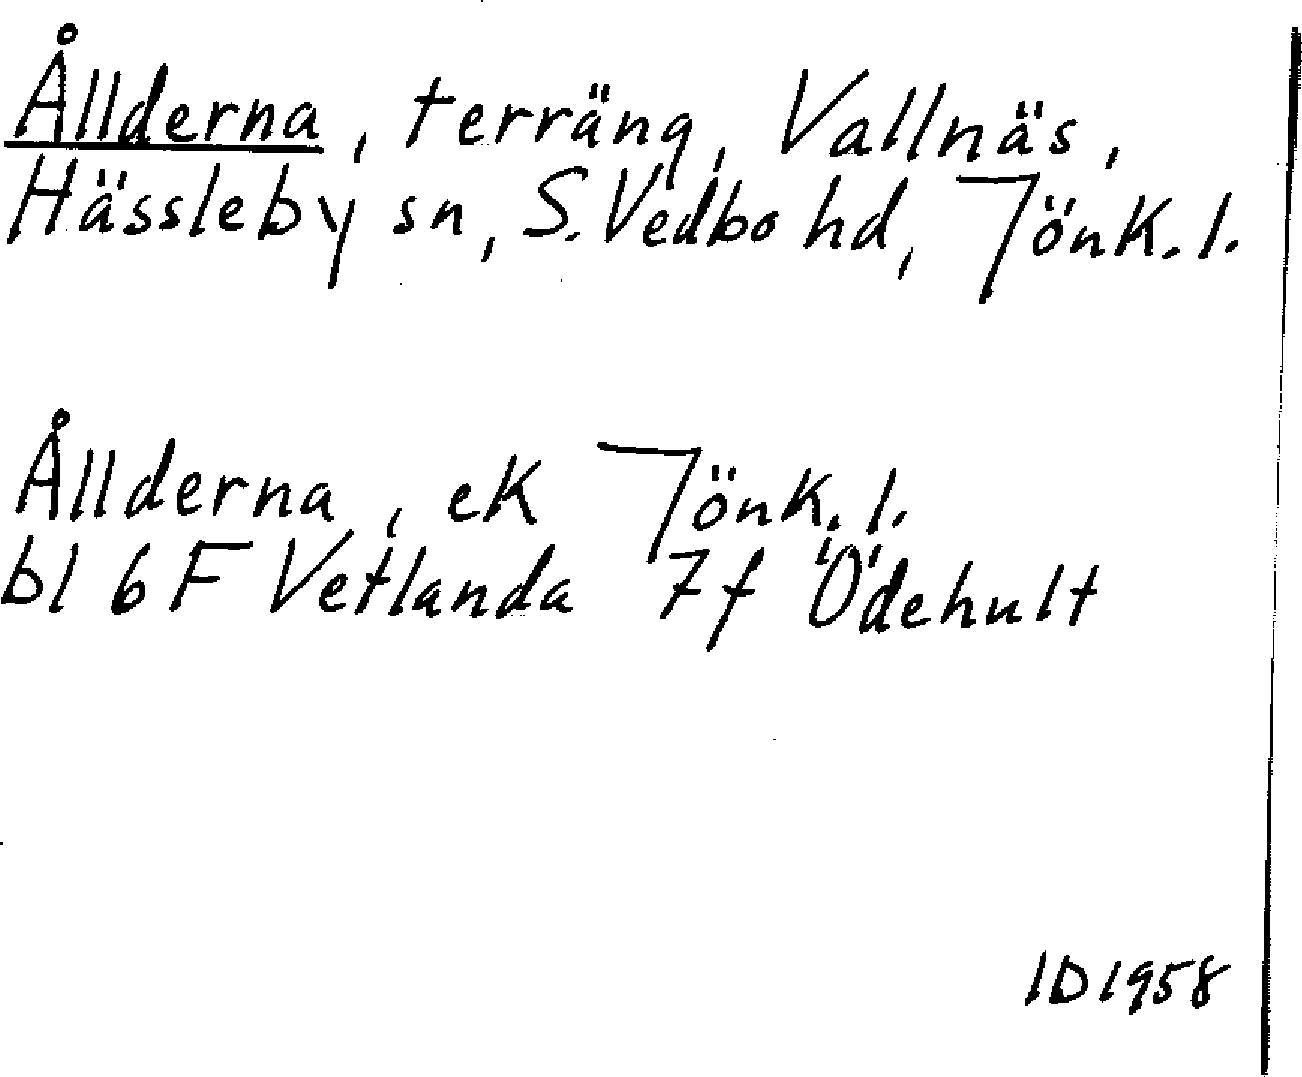 Ållderna, terräng, Vallnäs,
Hässleby sn, S. Vedbo hd, Jönk. l.
Ållderna, ek Jönk. l.
bl 6 F Vetlanda 7f Ödehult
ID 1958